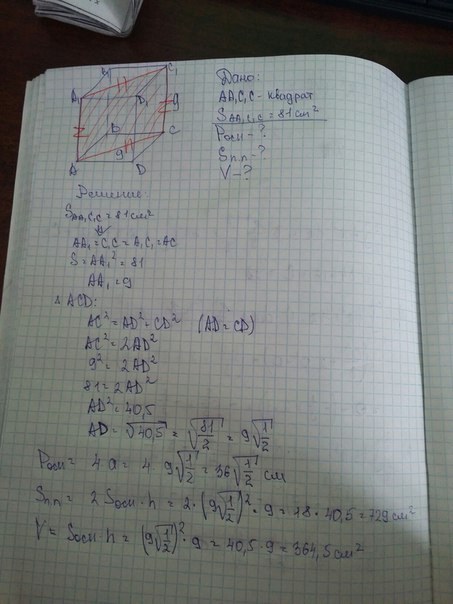 B₁ C₁
A₁ D₁ 9
B C
A 9 D
Дано:
AA₁C₁C - квадрат
S AA₁C₁C = 81 см²
Pосн - ?
Sп.п - ?
V - ?
Решение:
S AA₁C₁C = 81 см²
⇓
AA₁ = C₁C = A₁C₁ = AC
S = AA₁² = 81
AA₁ = 9
Δ ACD:
AC² = AD² = CD² (AD = CD)
AC² = 2AD²
9² = 2AD²
81 = 2AD²
AD² = 40,5
AD = √40,5 = √(81/2) = 9√(1/2)
Pосн = 4a = 4 · 9√(1/2) = 36√(1/2) см
Sпп = 2 Sосн · h = 2 · (9√(1/2))² · 9 = 18 · 40,5 = 729 см²
V = Sосн · h = (9√(1/2))² · 9 = 40,5 · 9 = 364,5 см²